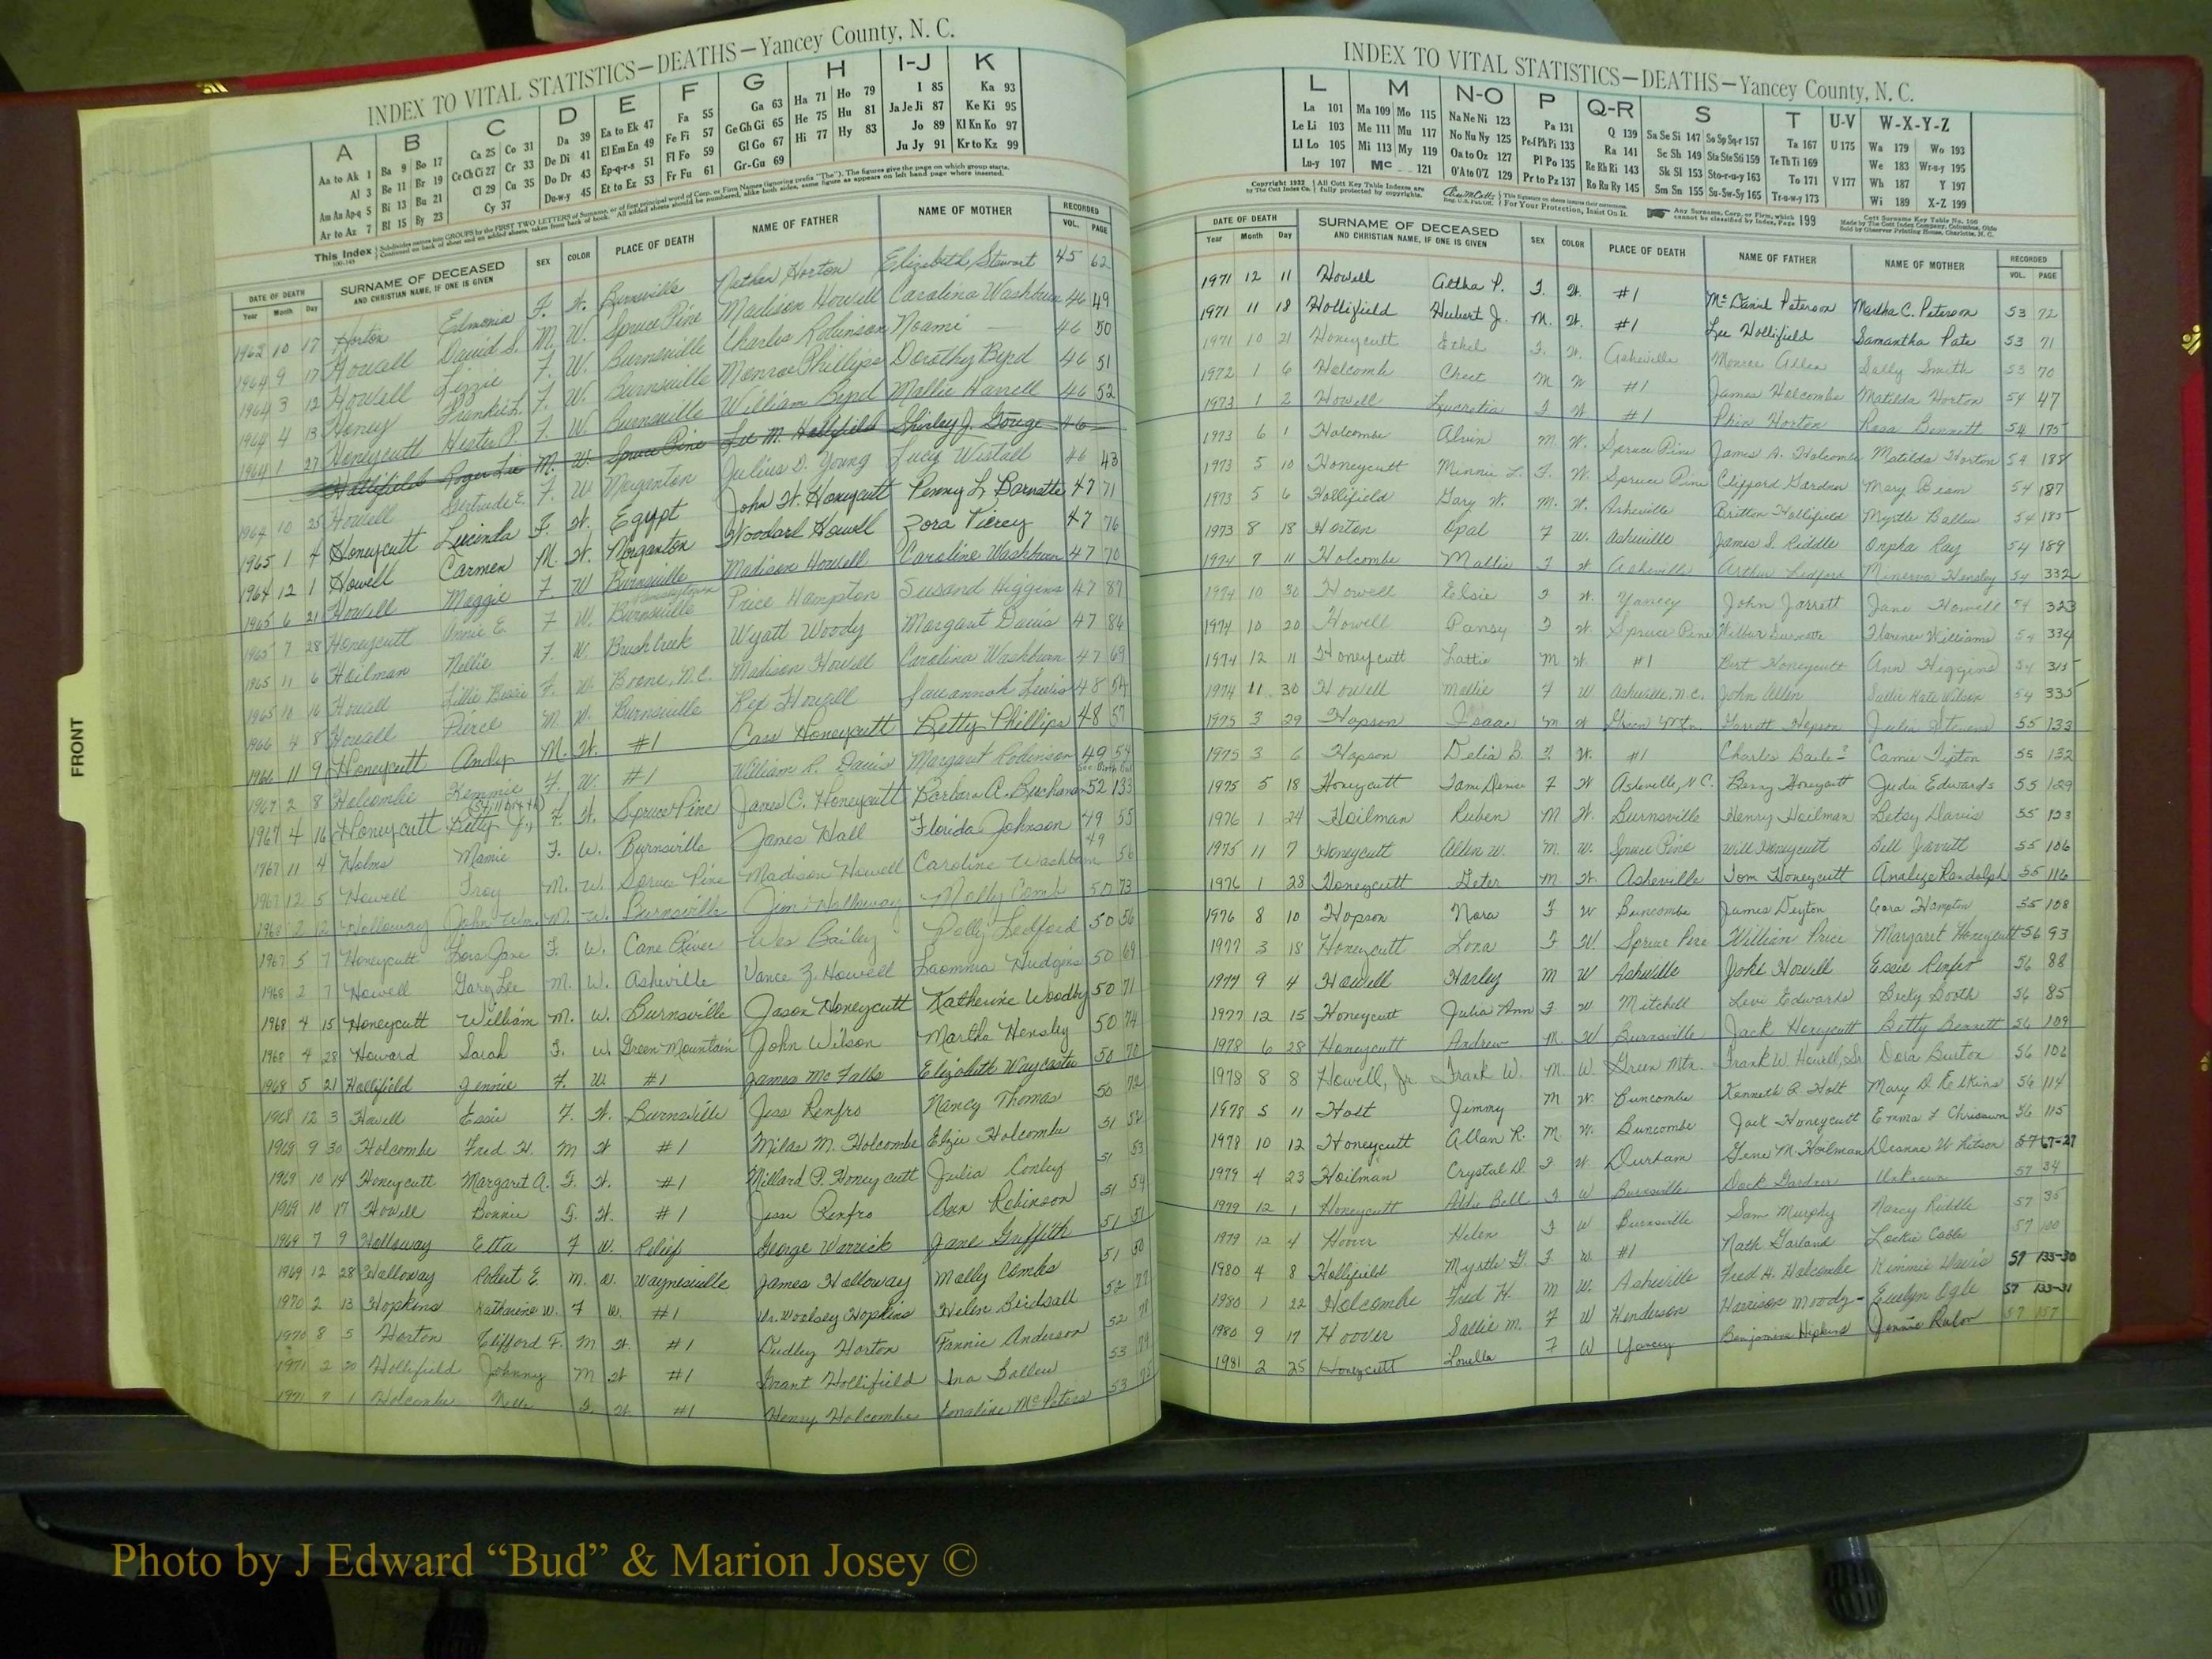 INDEX TO VITAL STATISTICS—DEATHS—Yancey County, N. C.
A B C D E F G H I-J K
Aa to Ak 1 Ba 9 Bo 17 Ca 25 Co 31 Da 39 Ea to Ek 47 Fa 55 Ga 63 Ha 71 Ho 79 I 85 Ka 93
Al 3 Be 11 Br 19 Ce Ch Ci 27 Cr 33 De Di 41 El Em En 49 Fe Fi 57 Ge Gh Gi 65 He 75 Hu 81 Ja Je Ji 87 Ke Ki 95
Am An Ap-q 5 Bi 13 Bu 21 Cl 29 Cu 35 Do Dr 43 Ep-q-r-s 51 Fl Fo 59 Gl Go 67 Hi 77 Hy 83 Jo 89 Kl Kn Ko 97
Ar to Az 7 Bl 15 By 23 Cy 37 Du-w-y 45 Et to Ez 53 Fr Fu 61 Gr-Gu 69 Ju Jy 91 Kr to Kz 99
This Index
DATE OF DEATH SURNAME OF DECEASED SEX COLOR PLACE OF DEATH NAME OF FATHER NAME OF MOTHER RECORDED
Year Month Day AND CHRISTIAN NAME, IF ONE IS GIVEN VOL. PAGE
1962 10 17 Horton Edmonia F. W. Burnsville Nathan Horton Elizabeth Stewart 45 62
1964 9 17 Howell David S. M. W. Spruce Pine Madison Howell Carolina Washburn 46 49
1964 3 12 Howell Lizzie F. W. Burnsville Charles Robinson Noami — 46 50
1964 4 13 Honey Frankie L. F. W. Burnsville Monroe Phillips Dorothy Byrd 46 51
1964 1 27 Honeycutt Hester P. F. W. Burnsville William Byrd Mallie Harrell 46 52
Hollifield Roger Lee M. W. Spruce Pine Lee M. Hollifield Shirley J. Gouge 46
1964 10 25 Howell Gertrude E. F. W Morganton Julius D. Young Lucy 46 43
1965 1 4 Honeycutt Lucinda F. W. Egypt John W. Honeycutt Penny L. Barnette 47 71
1964 12 1 Howell Carmen M. W. Morganton Woodard Howell Zora Piercy 47 76
1965 6 21 Howell Maggie F W Burnsville Madison Howell Caroline Washburn 47 70
1965 7 28 Honeycutt Annie E. F W. Burnsville Price Hampton Susand Higgins 47 87
1965 11 6 Hoilman Nellie F. W. Brush Creek Wyatt Woody Margaret Davis 47 86
1965 10 16 Howell Lillie Bessie F. W. Boone, N.C. Madison Howell Carolina Washburn 47 69
1966 4 8 Howell Pierce M W. Burnsville Rex Howell Savannah Lewis 48 54
1966 11 9 Honeycutt Andy M. W. #1 Cass Honeycutt Betty Phillips 48 57
1967 2 8 Holcombe Kemmie F. W. #1 William R. Davis Margaret Robinson 49 54
1967 4 16 Honeycutt Betty J. (Stillbirth) F. W. Spruce Pine James C. Honeycutt Barbara A. Buchanan 52 133
1967 11 4 Holms Mamie F. W. Burnsville James Hall Florida Johnson 49 55
1967 12 5 Howell Troy M. W. Spruce Pine Madison Howell Caroline Washburn 49 56
1968 2 2 Holloway John Wm. M. W. Burnsville Jim Holloway Molly Comb 50 73
1967 5 7 Honeycutt Lora Jane F. W. Cane River Wes Bailey Polly Ledford 50 56
1968 2 7 Howell Gary Lee M. W. Asheville Vance Z. Howell Laomma Hudgins 50 69
1968 4 15 Honeycutt William M. W. Burnsville Jason Honeycutt Katherine Woodby 50 71
1968 4 28 Howard Sarah F. W. Green Mountain John Wilson Martha Hensley 50 74
1968 5 21 Hollifield Jennie F. W. #1 James McFalls Elizabeth Waycaster 50 70
1968 12 3 Howell Essie F. W. Burnsville Jess Renfro Nancy Thomas 50 72
1969 9 30 Holcombe Fred H. M W #1 Milas M. Holcombe Elzie Holcombe 51 52
1969 10 14 Honeycutt Margaret A. F. W. #1 Millard P. Honeycutt Julia Conley 51 53
1969 10 17 Howell Bonnie F. W. #1 Jesse Renfro Ann Robinson 51 54
1969 7 9 Holloway Etta F W. Relief George Warrick Jane Griffith 51 51
1969 12 28 Holloway Robert E. M. W. Waynesville James Holloway Molly Combs 51 50
1970 2 13 Hopkins Katharine W. F W. #1 Dr. Woolsey Hopkins Helen Birdsall 52 77
1970 8 5 Horton Clifford F. M W. #1 Dudley Horton Fannie Anderson 52 78
1971 2 20 Hollifield Johnny M W #1 Grant Hollifield Ina Ballew 53
1971 7 1 Holcombe Nelle F. W. #1 Henry Holcombe McPeters 53
INDEX TO VITAL STATISTICS—DEATHS—Yancey County, N. C.
L M N-O P Q-R S T U-V W-X-Y-Z
La 101 Ma 109 Mo 115 Na Ne Ni 123 Pa 131 Q 139 Sa Se Si 147 So Sp Sq-r 157 Ta 167 U 175 Wa 179 Wo 193
Le Li 103 Me 111 Mu 117 No Nu Ny 125 Pe-f Ph Pi 133 Ra 141 Sc Sh 149 Sta Ste Sti 159 Te Th Ti 169 We 183 Wr-u-y 195
Ll Lo 105 Mi 113 My 119 Oa to Oz 127 Pl Po 135 Re Rh Ri 143 Sk Sl 153 Sto-r-u-y 163 To 171 V 177 Wh 187 Y 197
Lu-y 107 Mc 121 O'A to O'Z 129 Pr to Pz 137 Ro Ru Ry 145 Sm Sn 155 Su-Sw-Sy 165 Tr-u-w-y 173 Wi 189 X-Z 199
DATE OF DEATH SURNAME OF DECEASED SEX COLOR PLACE OF DEATH NAME OF FATHER NAME OF MOTHER RECORDED
Year Month Day AND CHRISTIAN NAME, IF ONE IS GIVEN VOL. PAGE
1971 12 11 Howell Aletha P. F. W. #1 McDaniel Peterson Martha C. Peterson 53 72
1971 11 18 Hollifield Hubert J. M. W. #1 Lee Hollifield Samantha Pate 53 71
1971 10 21 Honeycutt Ethel F. W. Asheville Monroe Allen Sally Smith 53 70
1972 1 6 Holcomb Chest M W #1 James Holcombe Matilda Horton 54 47
1973 1 2 Howell Lucretia F W #1 Phin Horton Rosa Bennett 54 175
1973 6 1 Holcombe Alvin M. W. Spruce Pine James A. Holcombe Matilda Horton 54 188
1973 5 10 Honeycutt Minnie L. F. W. Spruce Pine Clifford Gardner Mary Beam 54 187
1973 5 6 Hollifield Gary W. M. W. Asheville Britton Hollifield Myrtle Ballew 54 185
1973 8 18 Horton Opal F W. Asheville James S. Riddle Orpha Ray 54 189
1974 7 11 Holcombe Mallie F W Asheville Arthur Ledford Minerva Hensley 54 332
1974 10 30 Howell Elsie F W. Yancey John Jarrett Jane Howell 54 323
1974 10 20 Howell Pansy F W. Spruce Pine Wilbur Burnette Florence Williams 54 334
1974 12 11 Honeycutt Lattie M W #1 Bert Honeycutt Ann Higgins 54 315
1974 11 30 Howell Mallie F W Asheville, N.C. John Allen Sallie Kate Wilson 54 335
1975 3 29 Hopson Isaac M W Green Mtn. Garrett Hopson Julia Stevens 55 133
1975 3 6 Hopson Delia B. F. W. #1 Charles Bailey Camie Tipton 55 132
1975 5 18 Honeycutt Tami Denise F W Asheville, N.C. Benny Honeycutt Judie Edwards 55 129
1976 1 24 Hoilman Ruben M W. Burnsville Henry Hoilman Betsy Davis 55 123
1975 11 7 Honeycutt Allen W. M. W. Spruce Pine Will Honeycutt Bell Jarrett 55 106
1976 1 28 Honeycutt Geter M W. Asheville Tom Honeycutt Analize Randolph 55 116
1976 8 10 Hopson Nora F W Buncombe James Deyton Cora Hampton 55 108
1977 3 18 Honeycutt Lona F W Spruce Pine William Price Margaret Honeycutt 56 93
1977 9 4 Howell Harley M W Asheville Jake Howell Essie Renfro 56 88
1977 12 15 Honeycutt Julia Ann F W Mitchell Levi Edwards Becky Booth 56 85
1978 6 28 Honeycutt Andrew M W Burnsville Jack Honeycutt Betty Bennett 56 109
1978 8 8 Howell, Jr. Frank W. M. W. Green Mtn. Frank W. Howell, Sr. Dora Burton 56 106
1978 5 11 Holt Jimmy M W. Buncombe Kenneth R. Holt Mary D. Elkins 56 114
1978 10 12 Honeycutt Allan R. M. W. Buncombe Jack Honeycutt Emma F Chrisawn 56 115
1979 4 23 Hoilman Crystal D. F W. Durham Gene M. Hoilman Deanne W 57 67-27
1979 12 1 Honeycutt Addie Bell F W Burnsville Dock Gardner Unknown 57 34
1979 12 4 Hoover Helen F W Burnsville Sam Murphy Nancy Riddle 57 35
1980 4 8 Hollifield Myrtle G. F W #1 Nath Garland Lockie Cable 57 100
1980 1 22 Holcombe Fred H. M W. Asheville Fred H. Holcombe Kimmie Davis 57 133-30
1980 9 17 Hoover Sallie M. F W Henderson Harrison Moody Evelyn Ogle 57 133-31
1981 2 25 Honeycutt Louella F W Yancey Benjamine Hipkins Jennie Rulon 57 157
FRONT
Photo by J Edward “Bud” & Marion Josey ©